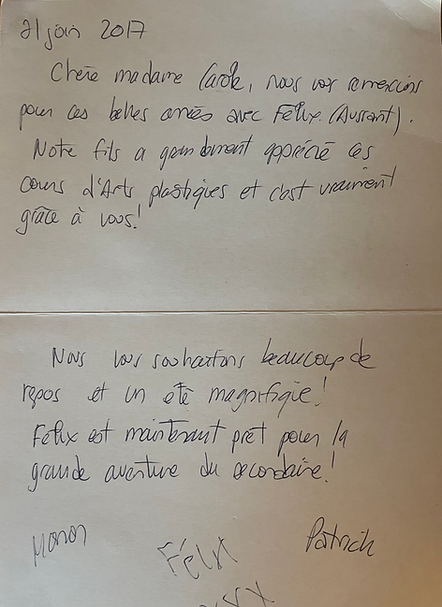 21 juin 2017
Chère madame Carole, nous vous remercions
pour ces belles années avec Félix (Aussant).
Notre fils a grandement apprécié ces
cours d'Arts plastiques et c'est vraiment
grâce à vous!
Nous vous souhaitons beaucoup de
repos et un été magnifique!
Félix est maintenant prêt pour la
grande aventure du secondaire!
Manon Félix Patrick
xx